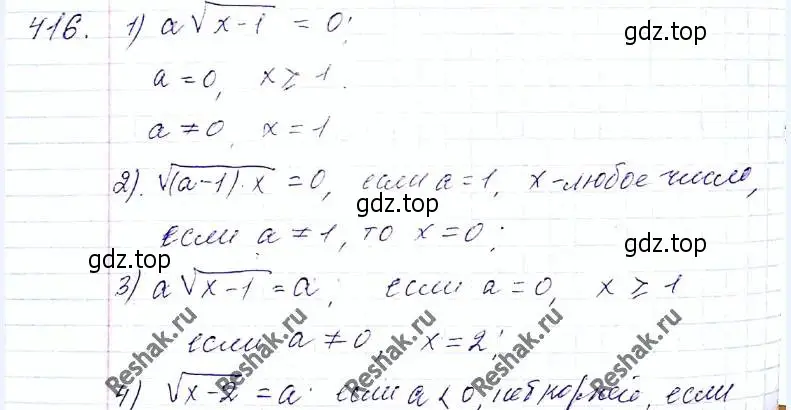 416. 1) a√x-1 = 0;
gdz.top
gdz.top
a = 0, x ≥ 1.
a ≠ 0, x = 1
2). √(a-1)·x = 0, если a = 1, x - любое число,
gdz.top
gdz.top
если a ≠ 1, то x = 0;
gdz.top
gdz.top
3) a√x-1 = a; если a = 0, x ≥ 1
если a ≠ 0, x = 2;
4) √x-2 = a. если a < 0, нет корней, если
Reshak.ru
Reshak.ru
Reshak.ru
Reshak.ru
Reshak.ru